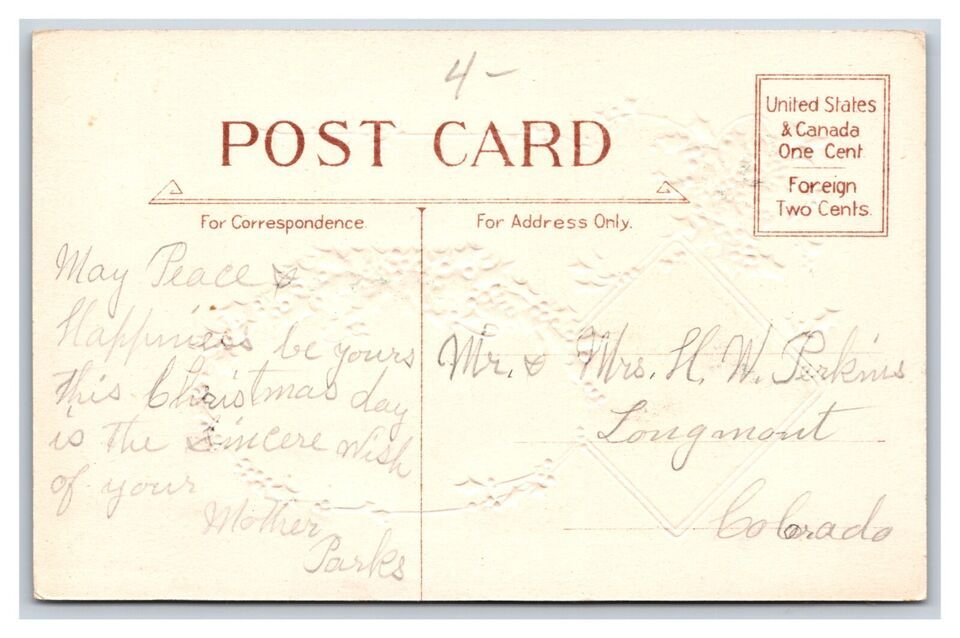 4-
POST CARD
United States
& Canada
One Cent
Foreign
Two Cents.
For Correspondence
For Address Only.
May Peace &
Happiness be yours
this Christmas day
is the sincere wish
of your
Mother
Parks
Mr. & Mrs. H. W. Perkins
Longmont
Colorado